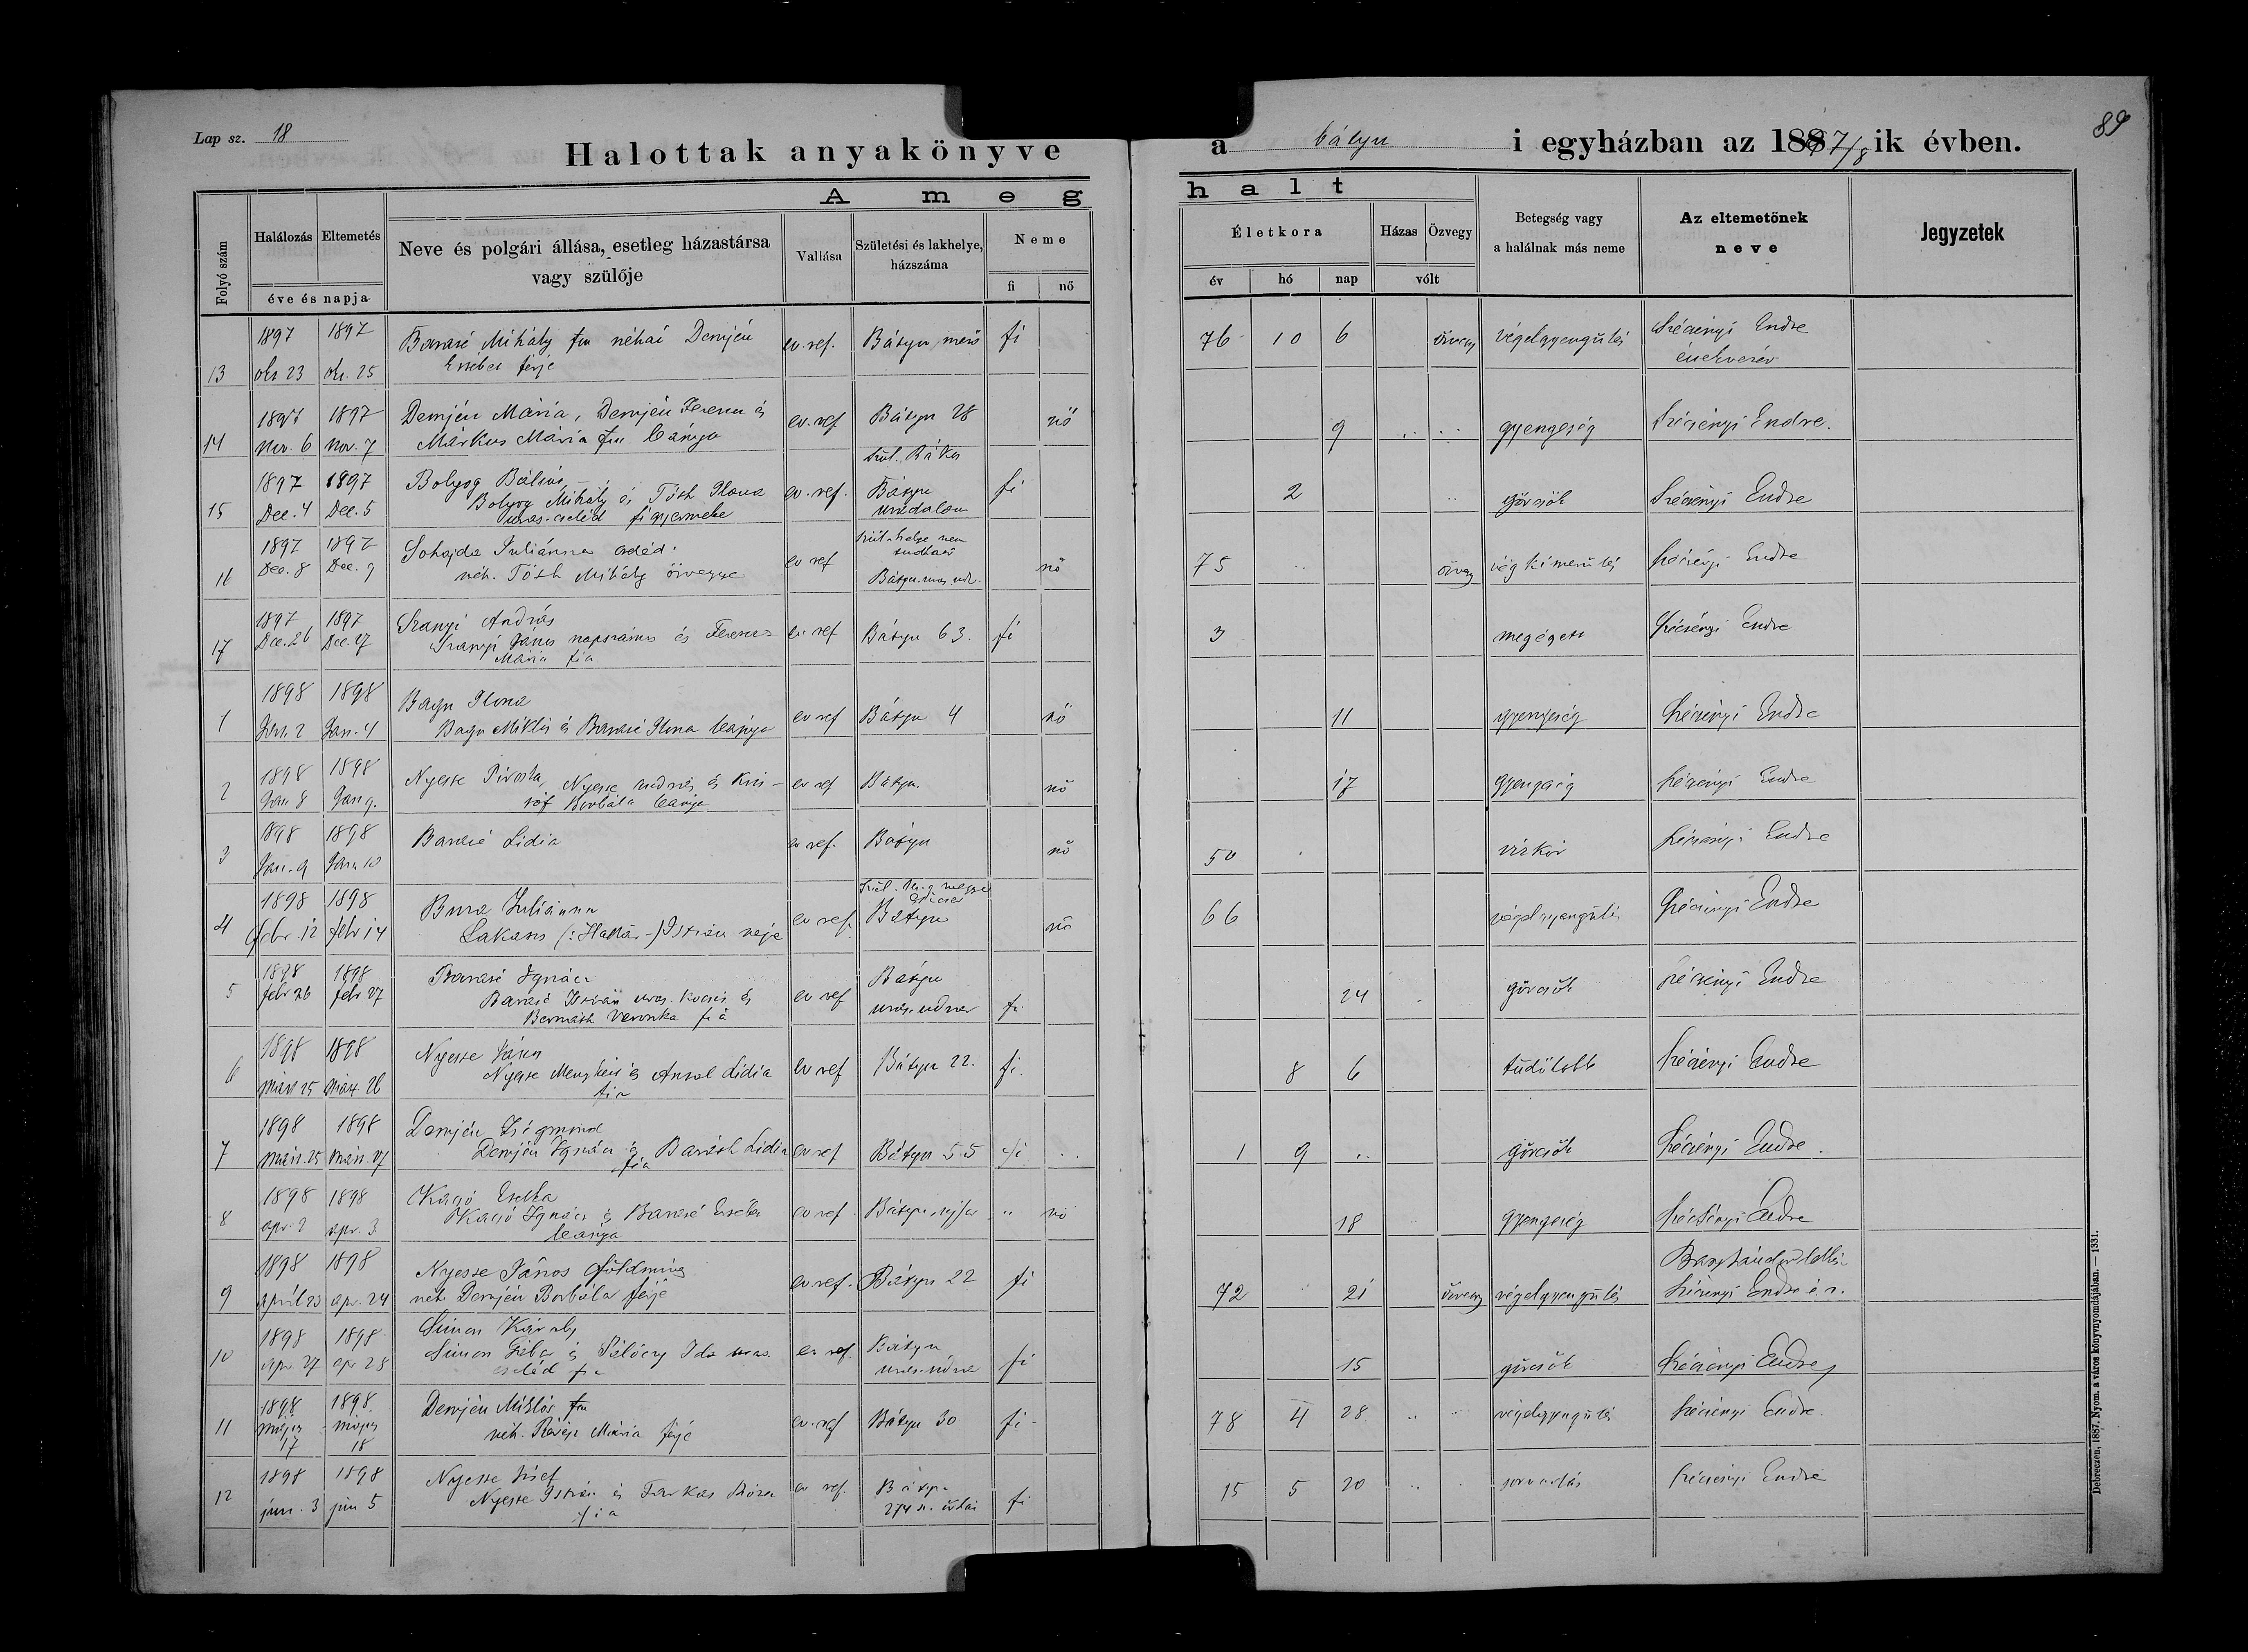 Lap sz. 18
Halottak anyakönyve
a bátyu i egyházban az 1897/8 ik évben.
89
A meg
halt
Folyó szám
Halálozás
Eltemetés
éve és napja
Neve és polgári állása, esetleg házastársa
vagy szülője
Vallása
Születési és lakhelye,
házszáma
Neme
fi
nő
Életkora
év
hó
nap
Házas
Özvegy
vólt
Betegség vagy
a halálnak más neme
Az eltemetőnek
neve
Jegyzetek
1897 1897
Mihály fm néhai Demjén ev. ref. Bátyu fi 76 10 6 özvegy végelgyengülés Szécsényi Endre
13 okt 23 okt. 25 Erzsébet férje
1897 1897 Demjén Mária, Demjén Ferencz és ev. ref Bátyu 28 nő 9 gyengeség Szécsényi Endre.
14 Nov. 6 Nov. 7 Márkus Mária fm leánya
1897 1897 Bolyog ev. ref. Bátyu fi 2 görcsök Szécsényi Endre
15 Dec. 4 Dec. 5 Bolyog Mihály és Tóth Ilona
uras. cseléd fi gyermeke uradalom
1897 1897 Juliánna cseléd ev ref szül. helye nem
16 Dec. 8 Dec. 9 néh. Tóth Mihály özvegye nő 75 özvegy végkimerülés Szécsényi Endre
1897 1897 András
17 Dec. 26 Dec. 27 János napszámos és Ferencz ev ref Bátyu 63. fi 3 megégett Szécsényi Endre
Mária fia
1898 1898 Bagu Ilona
1 Jan. 2 Jan. 4 Bagu Miklós és Ilona leánya ev ref Bátyu 4 nő 11 gyengeség Szécsényi Endre
1898 1898 Nyeste Piroska, Nyeste András és Kris-
2 Jan 8 Jan 9. tóf Borbála leánya ev ref Bátyu. nő 17 gyengeség Szécsényi Endre
1898 1898 Lidia ev ref. Bátyu nő 50 vízkór Szécsényi Endre
3 Jan. 9 Jan. 10
1898 1898 Juliánna
4 febr. 12 febr 14 Lakatos István neje ev ref. Bátyu nő 66 végelgyengülés Szécsényi Endre
1898 1898 Ignácz Bátyu
5 febr 26 febr 27 István uras. kocsis és ev ref uras. udvar fi 24 görcsök Szécsényi Endre
Veronka fia
1898 1898 Nyeste
6 márc 25 márc. 26 Nyeste Menyhért és Antal Lidia ev ref Bátyu 22. fi. 8 6 tüdőlobb Szécsényi Endre
fia
1898 1898 Demjén Zsigmond
7 márc. 25 márc. 27 Demjén Ignácz és Lidia ev ref Bátyu 55 fi 1 9 görcsök Szécsényi Endre.
fia
1898 1898 Kagó
8 apr. 2 apr. 3 Ignácz és Erzsébet ev ref. Bátyu nő 18 gyengeség Szécsényi Endre
leánya
1898 1898 Nyeste János földműves
9 april 23 apr. 24 néh Demjén Borbála férje ev ref. Bátyu 22 fi 72 21 özvegy végelgyengülés Szécsényi Endre
1898 1898 Simon Károly
10 apr 27 apr 28 Simon és Ida uras. ev ref. Bátyu
cseléd fia uras. udvar fi 15 görcsök Szécsényi Endre
1898 1898. Demjén Miklós fm
11 május május néh. Mária férje ev. ref Bátyu 30 fi 78 4 28 végelgyengülés Szécsényi Endre.
17 18
1898 1898 Nyeste József
12 jun. 3 jun 5 Nyeste István és Farkas ev ref. Bátyu fi 15 5 20 sorvadás Szécsényi Endre
fia
Debreczen, 1887. Nyom. a város könyvnyomdájában. — 1331.